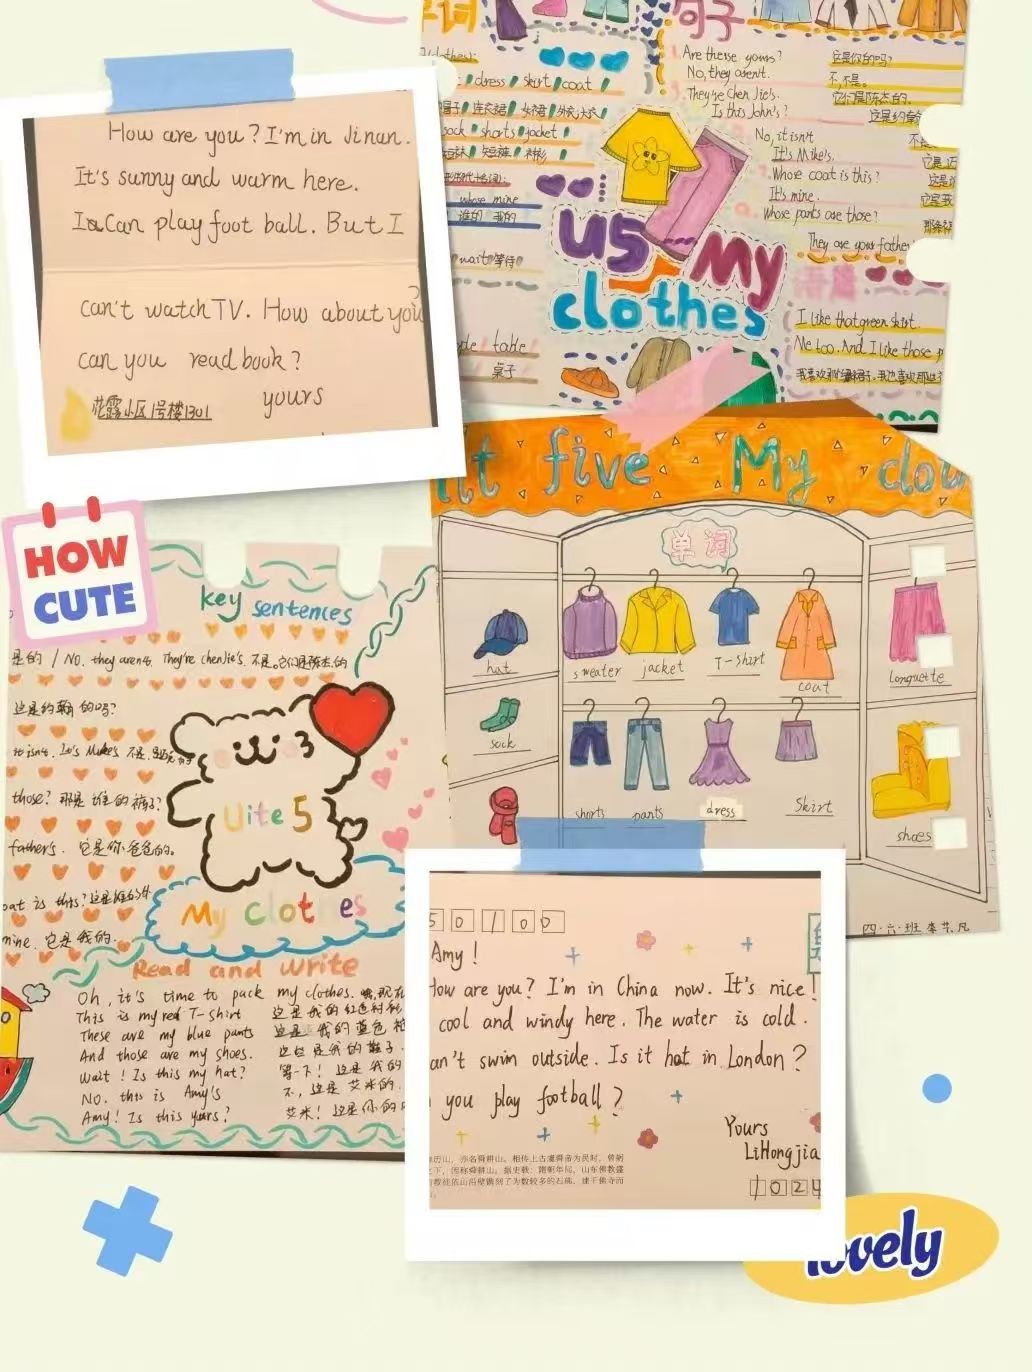 How are you? I'm in Jinan.
It's sunny and warm here.
I Can play foot ball. But I
can't watch TV. How about you?
can you read book?
花露小区1号楼1301
yours
单词
dress skirt coat
连衣裙 女裙
sock shorts jacket
短裤 衬衫
whose mine
谁的 我的
wait 等待
table
桌子
句子
Are these yours? 这是你的吗?
No, they aren't. 不,不是。
They're Chen Jie's. 它们是陈杰的.
Is this John's?
No, it isn't
It's Mike's.
Whose coat is this?
It's mine.
Whose pants are those?
They are your father
U5 My
clothes
I like that green skirt.
Me too. And I like those p
HOW
CUTE
key sentences
是的 / NO. they aren't. They're chenJie's. 不是。它们是陈杰的
这是约翰的吗?
it isn't. It's Mike's 不是.
those? 那是谁的裤子?
father's. 它是你爸爸的。
oat is this? 这是谁的外
mine. 它是我的.
Uite 5
My clothes
Read and write
Oh, it's time to pack my clothes.
This is my red T-shirt 这是我的红色衬衫
These are my blue pants 这是我的蓝色
And those are my shoes. 这些是我的鞋子.
Wait! Is this my hat? 等一下! 这是我的
NO. this is Amy's 不, 这是艾米的.
Amy! Is this yours? 艾米! 这是你的
it five My clo
单词
hat
sweater
jacket
T-shirt
coat
longuette
sock
shorts
pants
dress
Skirt
shoes
四·六·班
50100
Amy!
How are you? I'm in China now. It's nice!
cool and windy here. The water is cold.
an't swim outside. Is it hot in London?
you play football?
Yours
LiHongjia
1024
历山,亦名舜耕山。相传上古虞舜帝为民时,曾躬
下,因称舜耕山。据史载:隋朝年间,山东佛教盛
教徒依山沿壁镌刻了为数较多的石佛,建千佛寺而
lovely